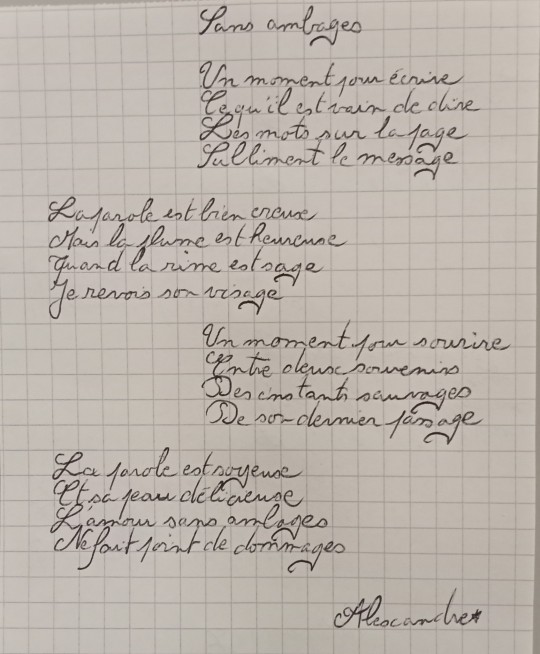 Sans ambages
Un moment pour écrire
Ce qu'il est vain de dire
Les mots sur la page
Subliment le message
La parole est bien creuse
Mais la plume est heureuse
Quand la rime est sage
Je revois son visage
Un moment pour sourire
Entre deux souvenirs
Des instants sauvages
De son dernier passage
La parole est soyeuse
Et sa peau délicieuse
L'amour sans ambages
Ne fait point de dommages
Alexandre*